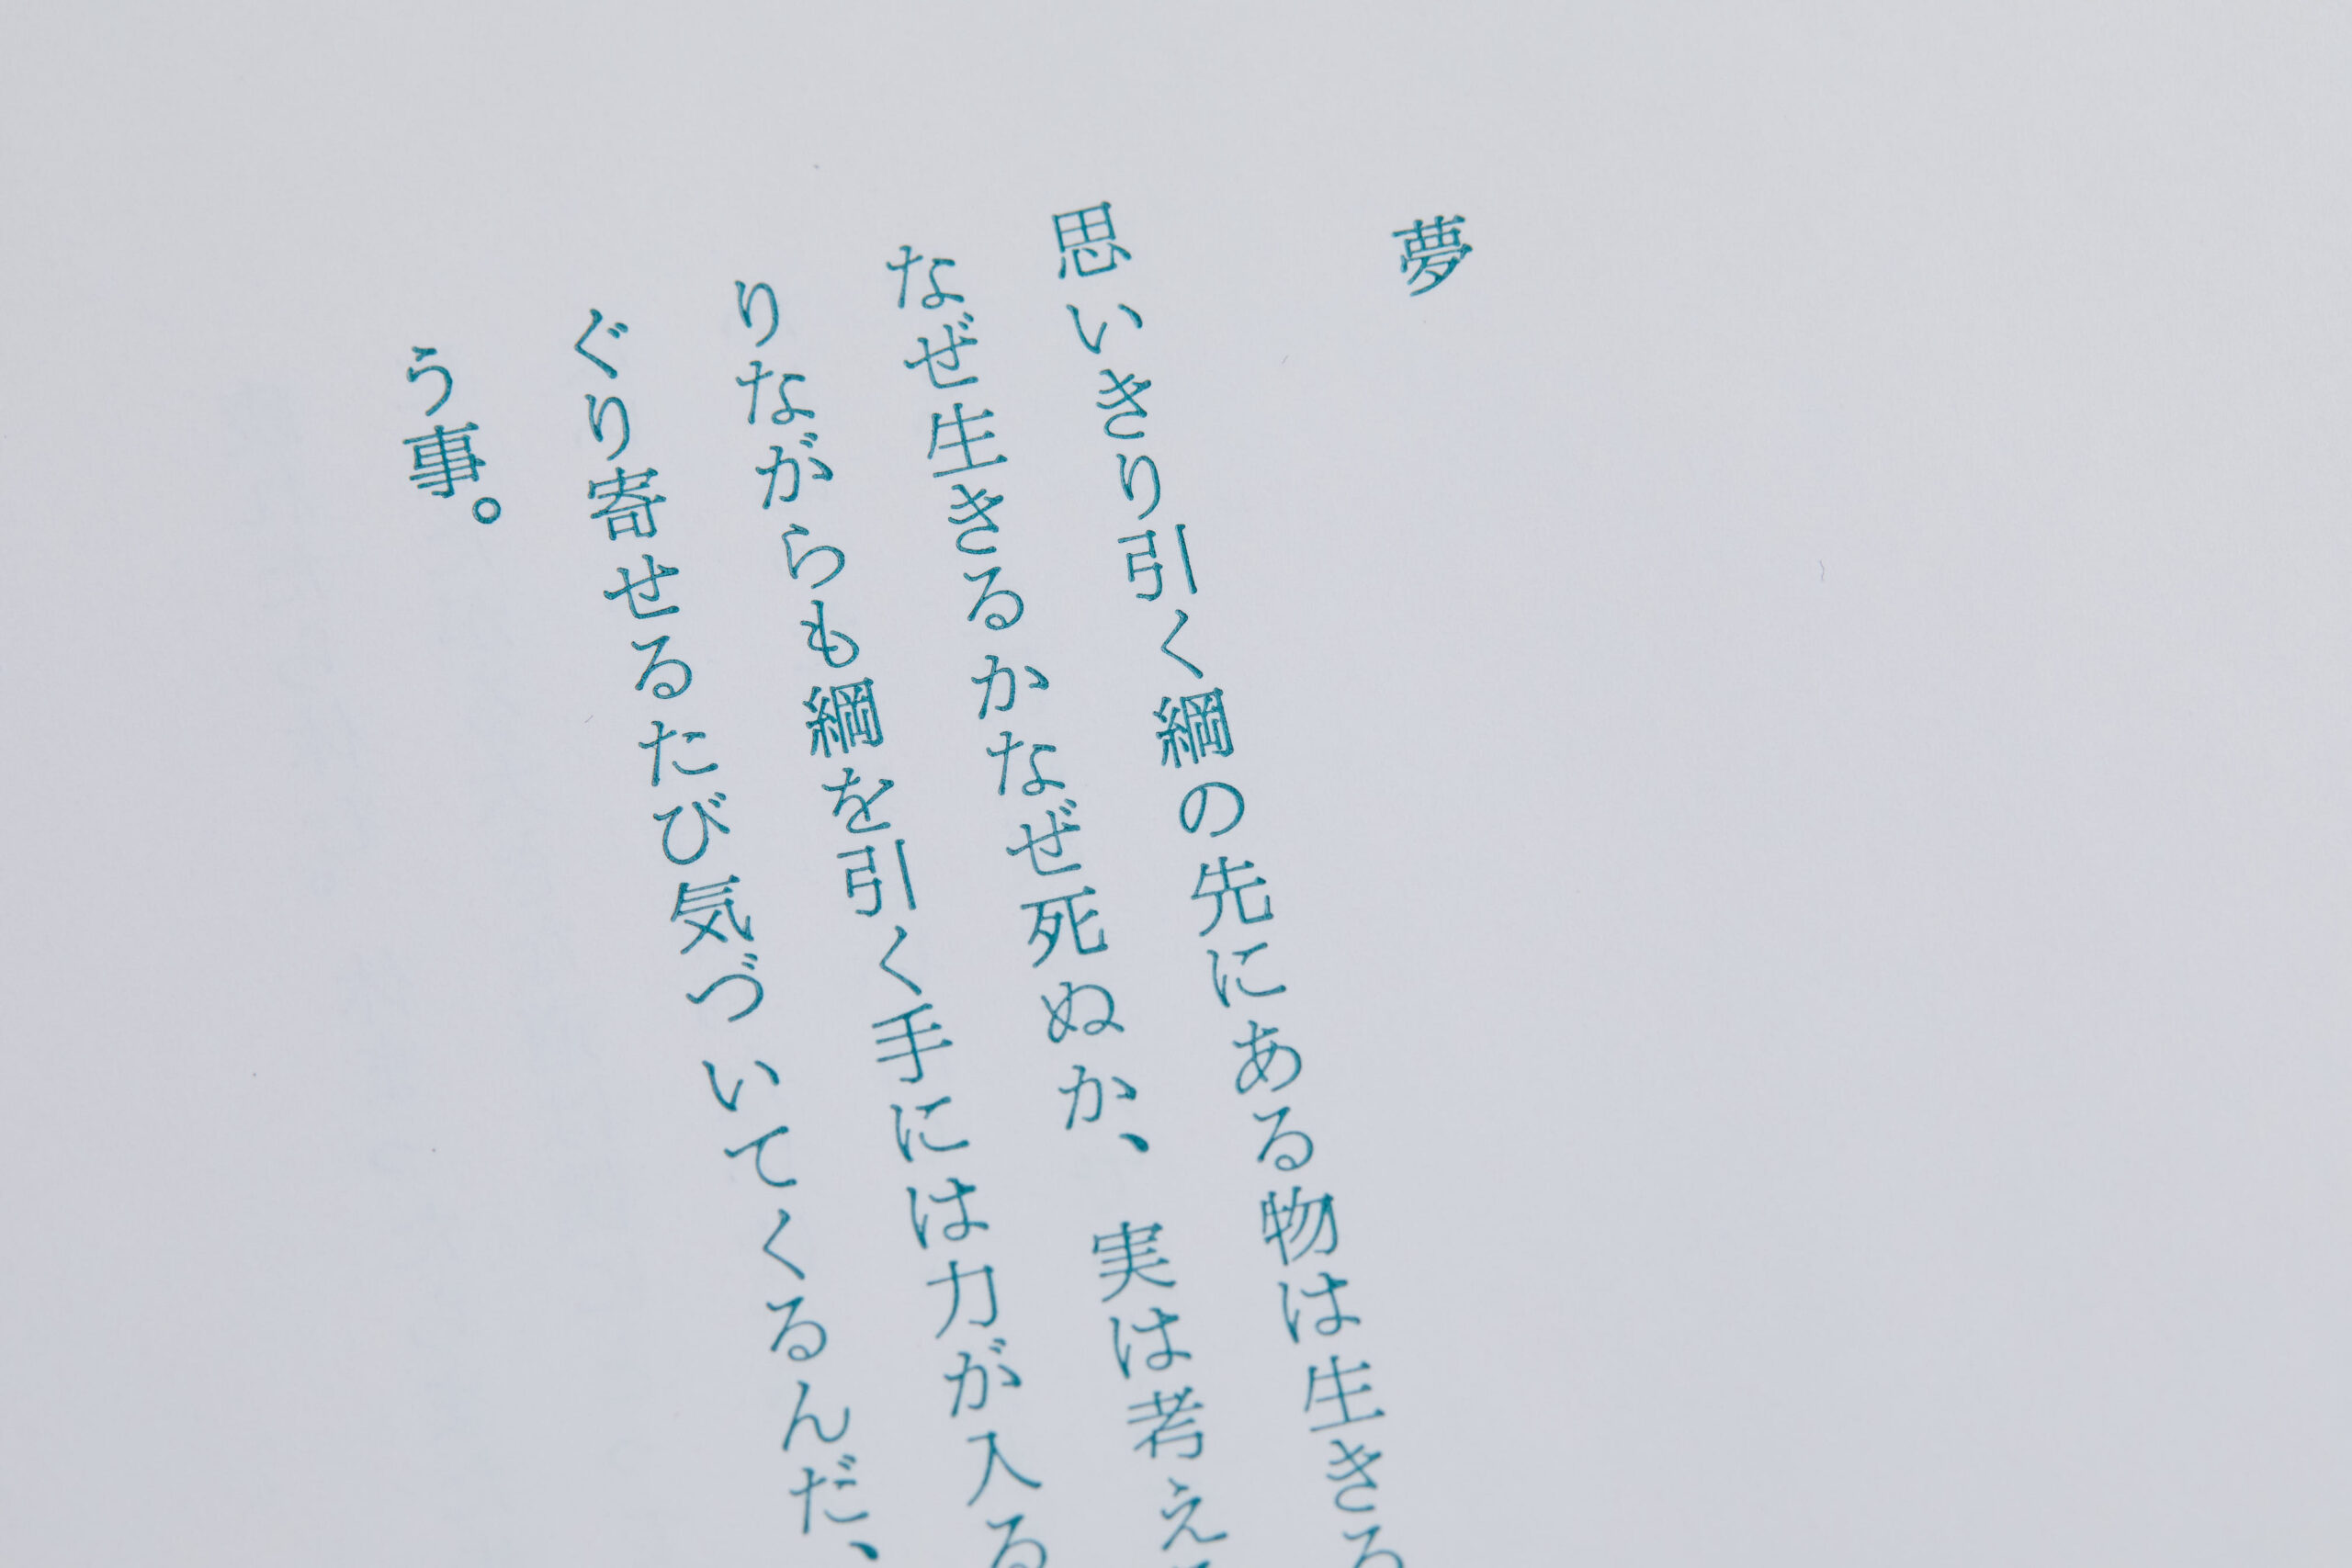 夢
思いきり引く綱の先にある物は生きる
なぜ生きるかなぜ死ぬか、実は考え
りながらも綱を引く手には力が入る
ぐり寄せるたび気づいてくるんだ、
う事。